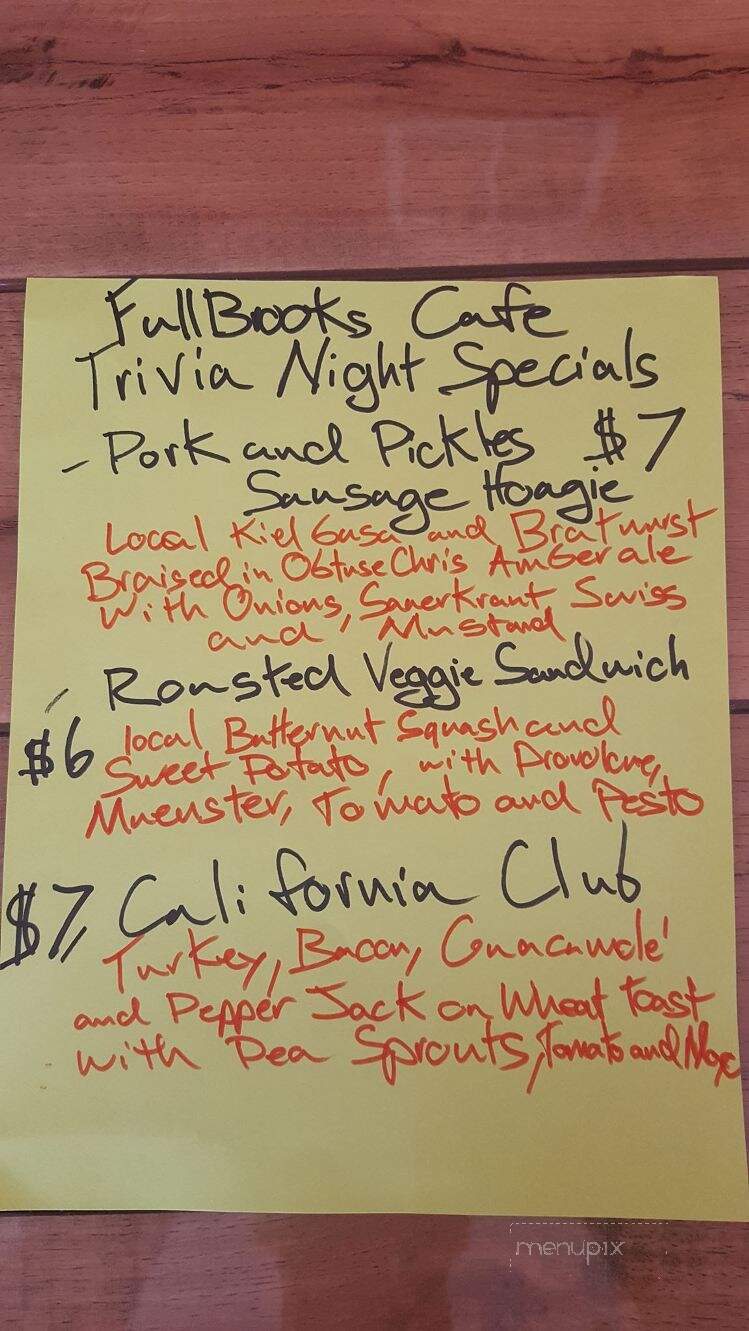 FullBrooks Cafe
Trivia Night Specials
- Pork and Pickles $7
Sausage Hoagie
Local Kielbasa and Bratwurst
Braised in Obtuse Chris Amber ale
With Onions, Sauerkraut Swiss
and Mustard
- Roasted Veggie Sandwich
$6 local Butternut Squash and
Sweet Potato, with Provolone,
Muenster, Tomato and Pesto
$7, California Club
Turkey, Bacon, Guacamole
and Pepper Jack on Wheat toast
with Pea Sprouts, Tomato and Mayo
menupix